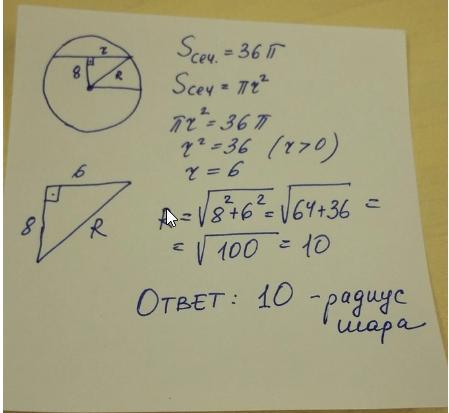 r
8
R
Sсеч. = 36π
Sсеч = πr²
πr² = 36π
r² = 36 (r>0)
r = 6
6
8
R
R = √8²+6² = √64+36 =
= √100 = 10
Ответ: 10 - радиус
шара